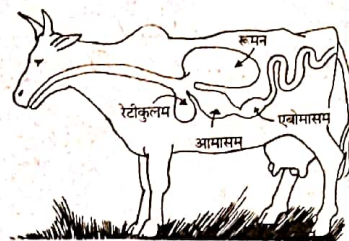 रूमन
रेटीकुलम
एबोमासम
आमासम